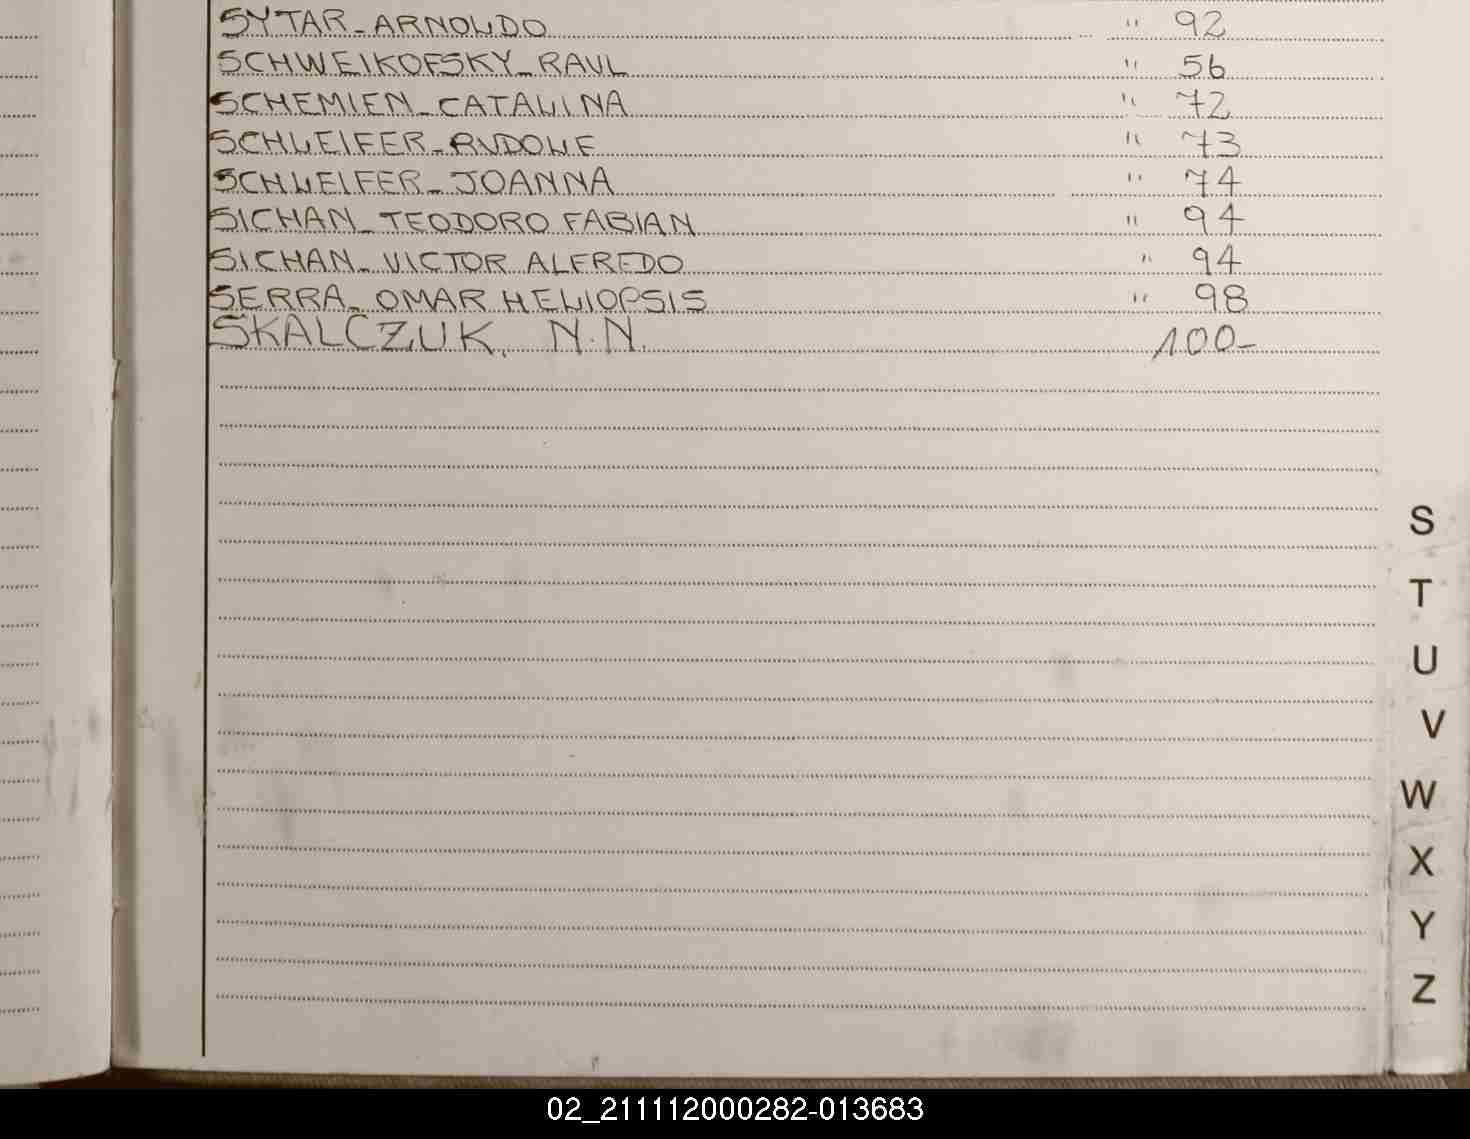 SYTAR_ARNOLDO " 92
SCHWEIKOFSKY_RAUL " 56
SCHEMIEN_CATALINA " 72
SCHLEIFER_RUDOLF " 73
SCHLEIFER_JOANNA " 74
SICHAN_TEODORO FABIAN " 94
SICHAN_VICTOR ALFREDO " 94
SERRA_OMAR HELIOPSIS " 98
SKALCZUK, N.N. 100-
S
T
U
V
W
X
Y
Z
02_211112000282-013683